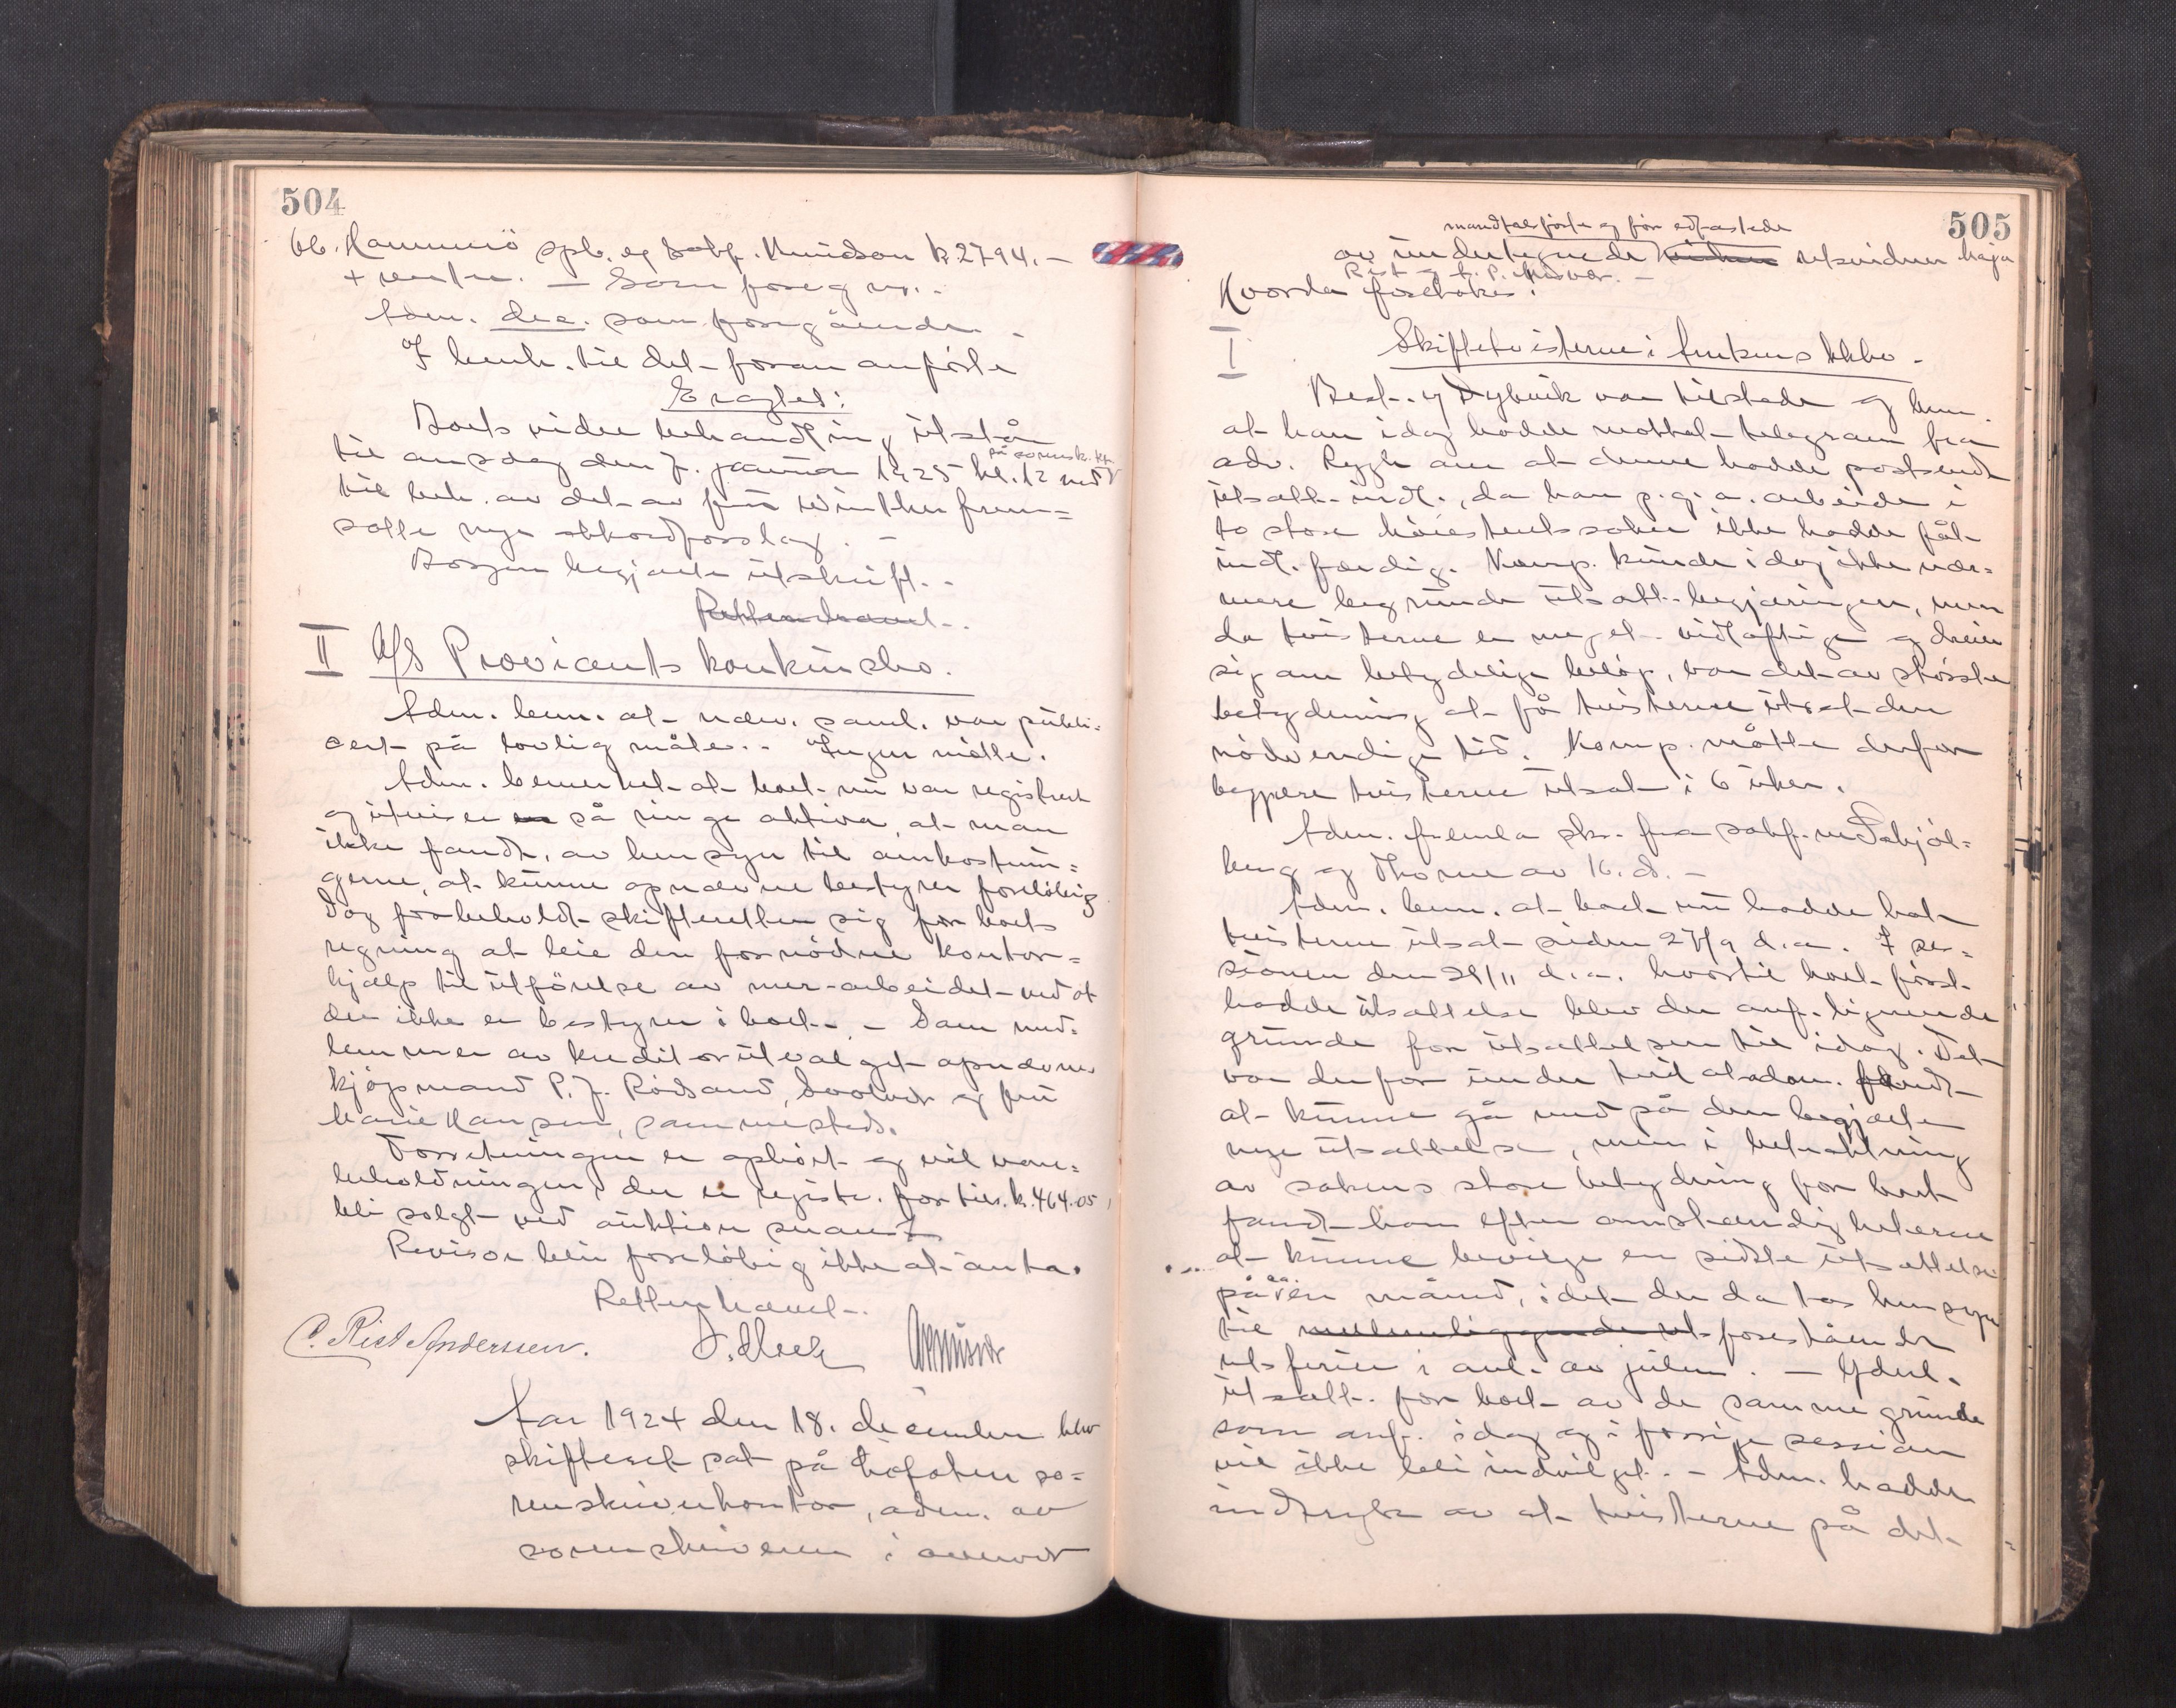 504
66. Hammerö spb. og sakf. Knudson k. 2794.-
+ renter. - Som foreg nr..
Adm. dec. som foregående.
I henh. til det foran anförte
Eragtet:
Boets videre behandling utstår
på sorensk. ktr.
til onsdag den 7. januar 1925 kl. 12 midd
til beh. av det av fru Winther frem=
satte nye akkordforslag. -
begjærte utskrift. -
Retten hævet. -
II A/S Proviants konkursbo.
Adm. bem. at nærv. saml. var publi=
cert på lovlig måte. - Ingen mötte.
Adm. bemerket at boet nu var registrert
og utviser så ringe aktiva, at man
ikke fandt, av hensyn til omkostnin=
gerne, at kunne opnævne bestyrer foreløbig
Dog forbeholdt skifteretten sig for boets
regning at leie den fornödne kontor=
hjælp til utförelse av mer-arbeidet ved at
der ikke er bestyrer i boet. - Som med=
lemmer av kreditorutvalget opnævnes
kjöpmand P. J. Rödsand, Svolvær og fru
Marie Hansen, sammesteds.
Forretningen er ophört og vil vare=
beholdningen, der er registr. for tils. k. 464.05,
bli solgt ved auktion snarest
Revisor blir foreløbig ikke at anta.
Retten hævet. -
C. Rist Anderssen.
Aar 1924 den 18. december blev
skifteret sat på Lofoten so=
renskriverkontor, adm. av
sorenskriveren i overvær
505
mandtalsförte og för edfæstede
av undertegnede retsvidner Maja
Rist og
Hvorda foretokes:
I
Skiftetvisterne i kkbo.
Best. y Dybvik var tilstede og bem.
at han idag hadde mottat telegram fra
adv. Rygh om at denne hadde postsendt
utsatt. indl., da han p. g. a. arbeide i
to store höiesteretssaker ikke hadde fåt
indl. færdig. Komp. kunde idag ikke nær=
mere begrunde utsatt. begjæringen, men
da tvisterne er meget vidlöftige og dreier
sig om betydelige belöp, var det av störste
betydning at få tvisterne utsat den
nödvendige tid. Komp. måtte derfor
begjære tvisterne utsat i 6 uker.
Adm. fremla skr. fra sakf. Schjöl=
berg og Thorne av 16. ds. -
Adm. bem. at boet nu hadde hat
tvisterne utsat siden 27/9 d. a. I ses=
sionen den 29/11 d. a. hvortil boet först
hadde utsættelse blev der anf. lignende
grunde for utsættelsen til idag. Det
var derfor under tvil at adm. fandt
at kunne gå med på den begjærte
nye utsættelse, men i betraktning
av sakens store betydning for boet
fandt han efter omstændigheterne
at kunne bevilge en sidste utsættelse
på en måned, idet der da tas hensyn
til mellemliggende ret forestående
retsferier i anl. av julen. - Yderl.
utsætt. for boet av de samme grunde
som anf. idag og i forrige session
vil ikke bli indvilget. - Adm. hadde
indtryk av at tvisterne på det